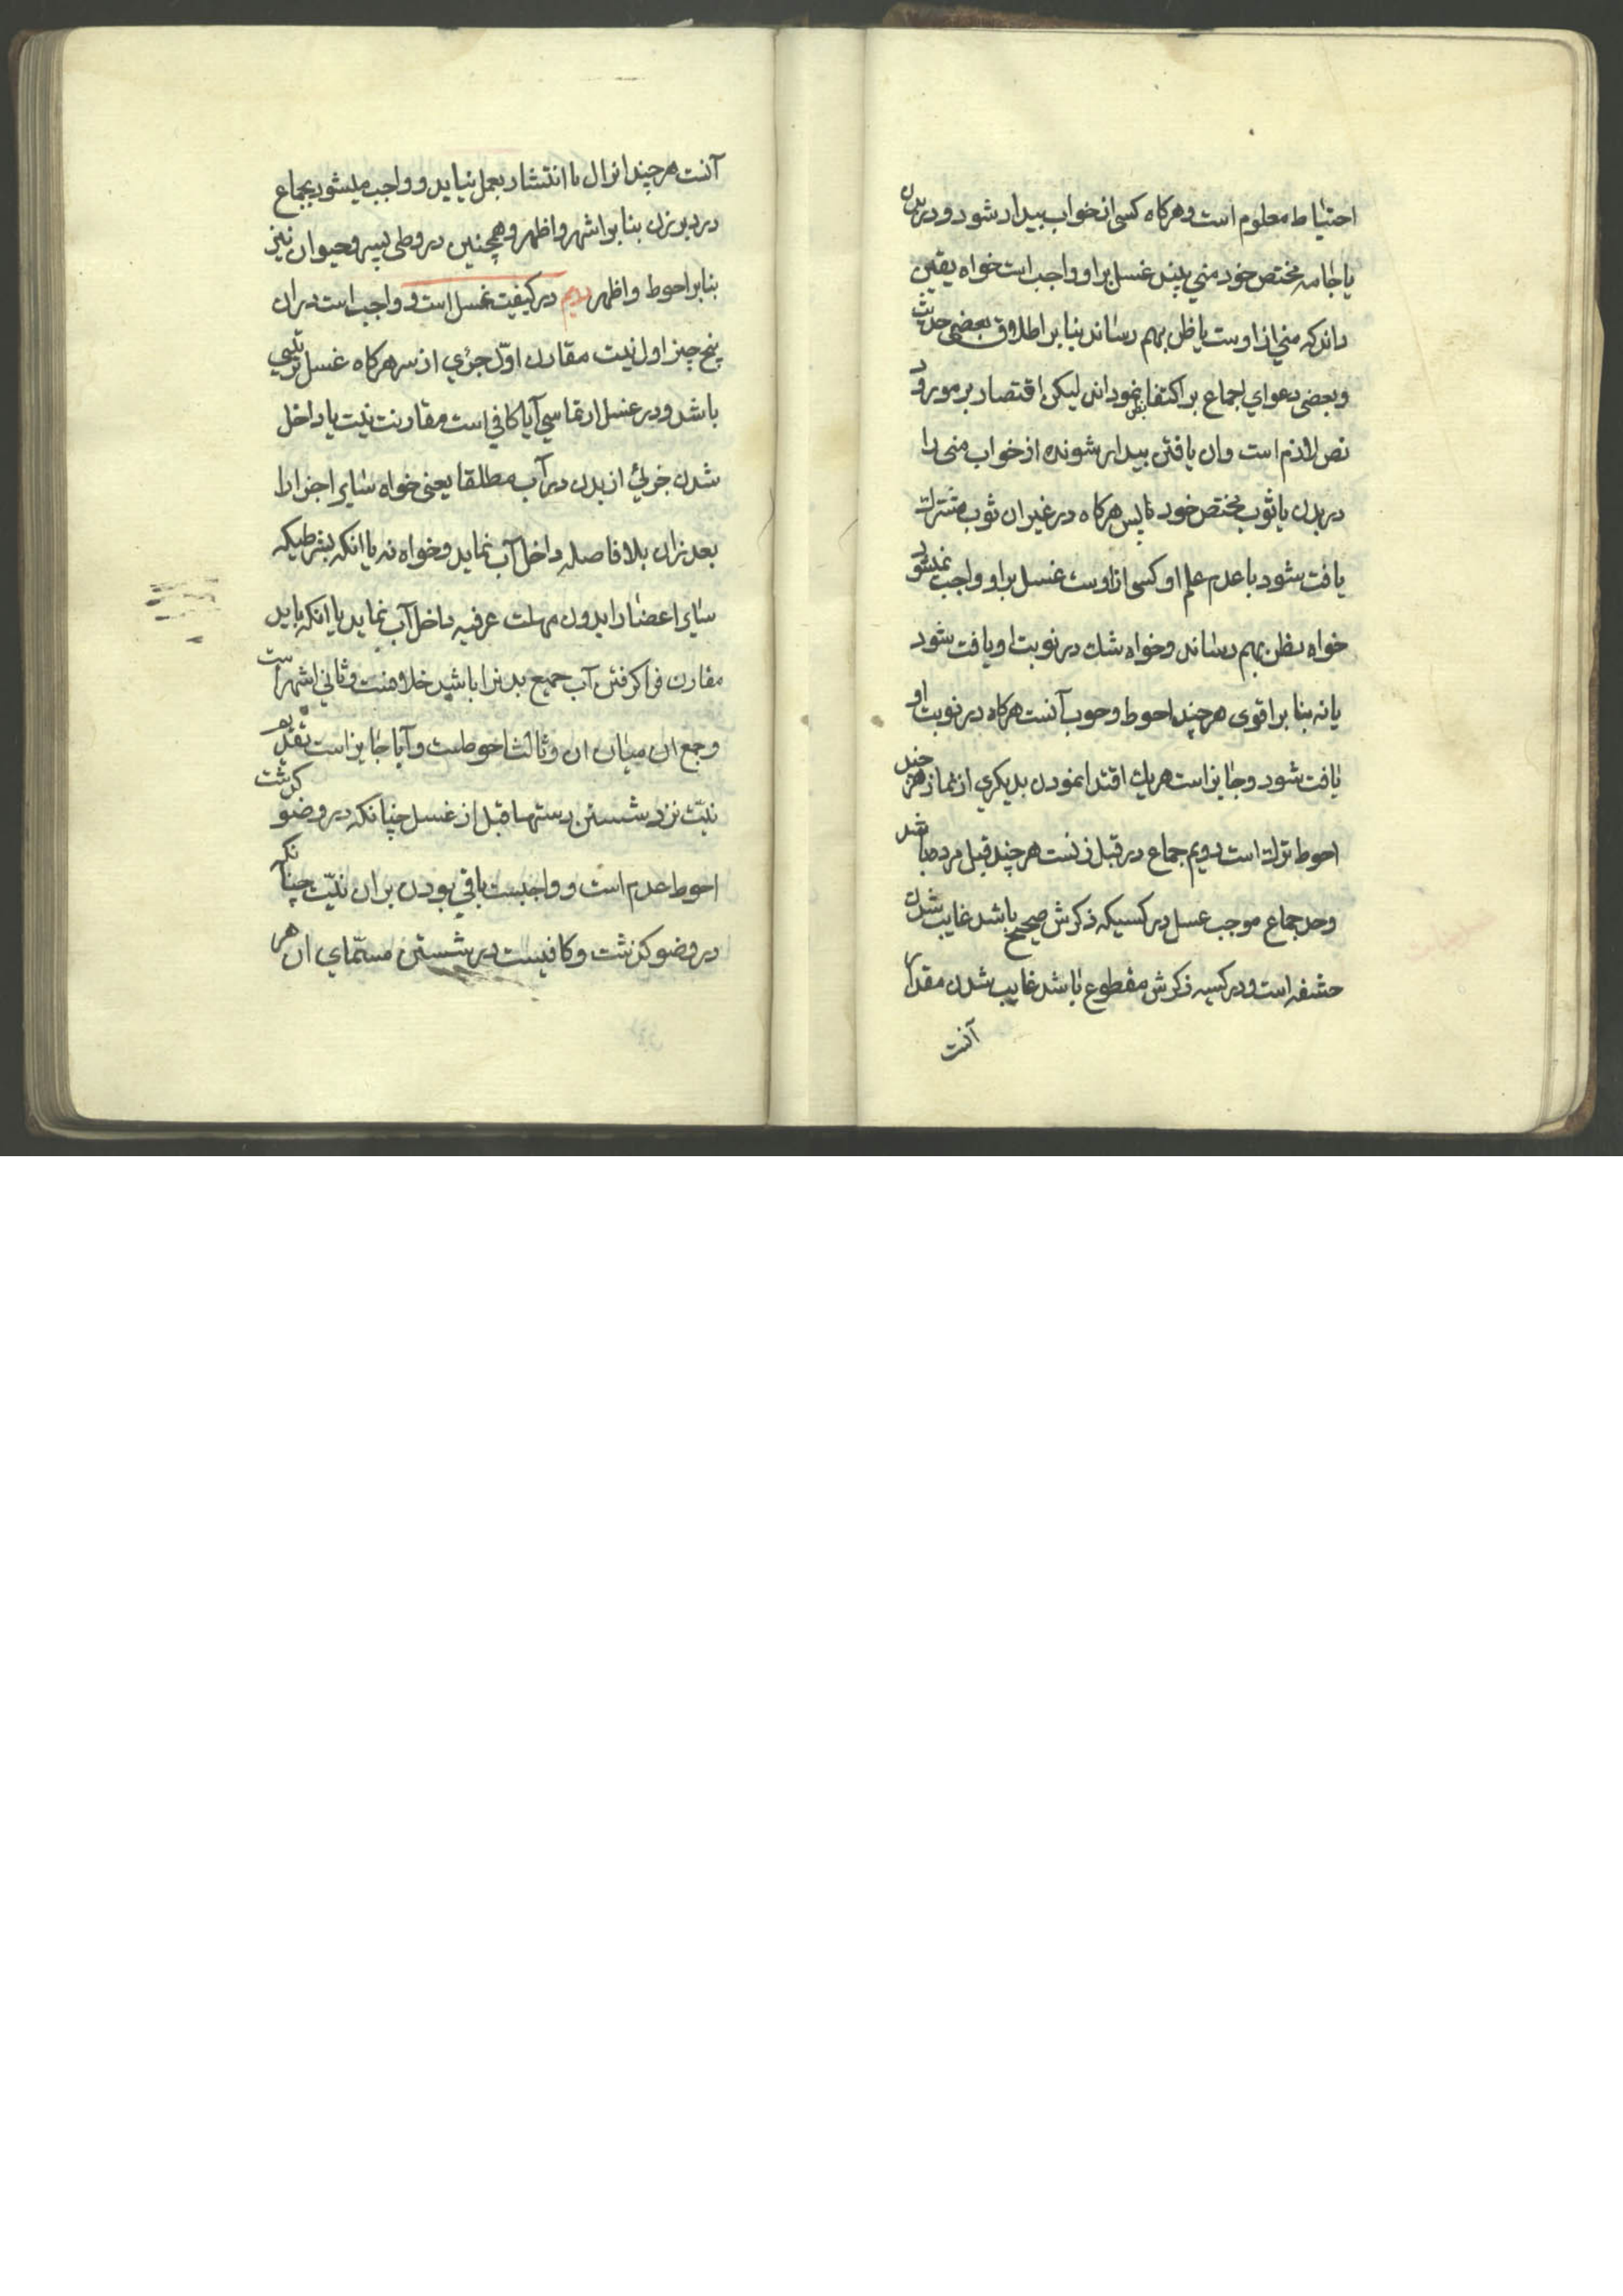 احتیاط معلوم است و هرکاه کسی از خواب بیدار شود و در بدن
یا جامه مختص خود منی بیند غسل بر او واجب است خواه یقین
داند که منی از اوست یا ظن بهم رساند بنا بر اطلاق بعضی حدیث
و بعضی دعوای اجماع بر اکتفا بظن نموداند لیکن اقتصار بر مورد
نص لازم است و ان یافتن بیدار شونده از خواب منی را
در بدن یا ثوب مختص خود پس هرکاه در غیر ان ثوب مشترك
یافت شود با عدم علم او کسی از اوست غسل بر او واجب نمیشود
خواه بظن بهم رساند و خواه شك در نوبت او یافت شود
یا نه بنا بر اقوی هرچند احوط وجوب آنست هرکاه در نوبت او
یافت شود و جایز است هریك اقتدا نمودن بدیکری از نماز هرچند
احوط ترك است دویم جماع در قبل زنست هرچند قبل مرده باشد
و حد جماع موجب غسل در کسیکه ذکرش صحیح باشد غایب شدن
حشفه است و در کسیه ذکرش مقطوع باشد غایب شدن مقدار
آنست
آنست هرچند انزال با انتشار بعمل نیاید و واجب میشود بجماع
در دبر زن بنا بر اشهر و اظهر و همچنین در وطی پسر و حیوان نیز
بنا بر احوط و اظهر دویم در کیفیت غسل است و واجب است در ان
پنج چیز اول نیت مقارن اوّل جزءی از سر هرکاه غسل ترتیبی
باشد و در غسل ارتماسی آیا کافی است مقارنت نیت با داخل
شدن جزئی از بدن در آب مطلقا یعنی خواه سایر اجزا را
بعد زان بلا فاصله داخل آب نماید و خواه نه یا انکه بشرطیکه
سایر اعضا را بدون مهلت عرفیه داخل آب نماید یا انکه باید
مقارن فرا کرفتن آب جمیع بدنرا باشد خلافست و ثانی اشهر است
و جمع ان میان ان و ثالث احوطست و آیا جایز است تقدیم
نیّت نزد شستن دستها قبل از غسل چنانکه در وضو کذشت
احوط عدم است و واجبست باقی بودن بران نیّت چنانکه
در وضو کذشت و کافیست در شستن مسمّای ان هر